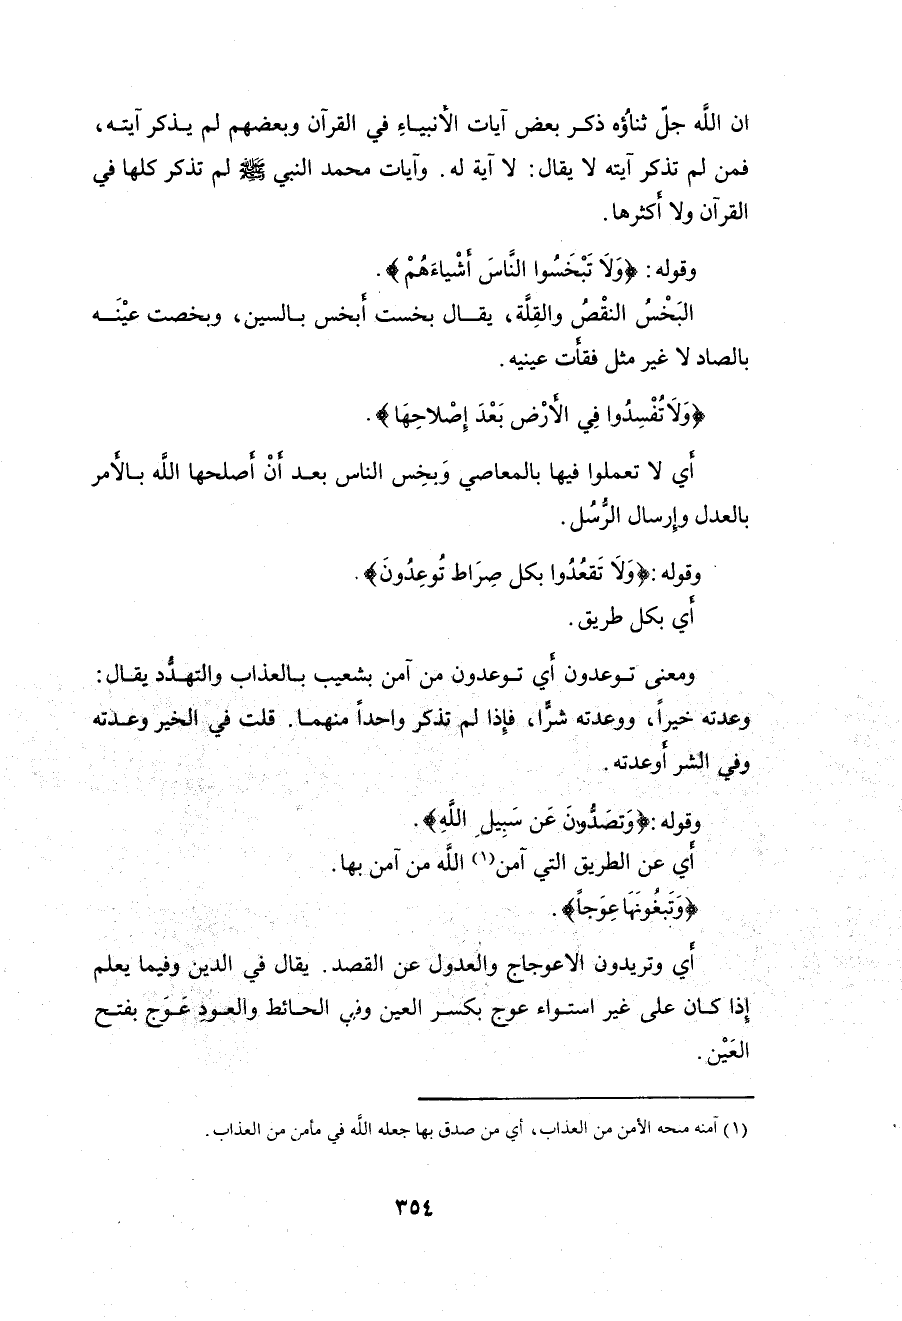 ان اللَّه جلّ ثناؤه ذكر بعض آيات الأنبياءِ في القرآن وبعضهم لم يذكر آيته،
فمن لم تذكر آيته لا يقال: لا آية له. وآيات محمد النبي ﷺ لم تذكر كلها في
القرآن ولا أَكثرها.
وقوله: ﴿وَلَا تَبْخَسُوا النَّاسَ أَشْياءَهُمْ﴾.
البَخْسُ النقْصُ والقِلَّة، يقال بخست أَبخس بالسين، وبخصت عيْنَه
بالصاد لا غير مثل فقأت عينيه.
﴿وَلَا تُفْسِدُوا فِي الأَرْضِ بَعْدَ إِصْلاحِهَا﴾.
أَي لا تعملوا فيها بالمعاصي وَبخِس الناس بعد أَنْ أَصلحها اللَّه بالأَمر
بالعدل وإرسال الرُّسُل.
وقوله: ﴿وَلَا تَقعُدُوا بكل صِرَاط تُوعِدُونَ﴾.
أَي بكل طريق.
ومعنى توعدون أَي توعدون من آمن بشعيب بالعذاب والتهدُّد يقال:
وعدته خيراً، ووعدته شرًّا، فإذا لم تذكر واحداً منهما. قلت في الخير وعدته
وفي الشر أَوعدته.
وقوله: ﴿وَتصَدُّونَ عَن سَبِيلِ اللَّهِ﴾.
أَي عن الطريق التي آمن(١) اللَّه من آمن بها.
﴿وَتَبغُونَهَا عِوَجاً﴾.
أَي وتريدون الاعوجاج والعدول عن القصد. يقال في الدين وفيما يعلم
إذا كان على غير استواء عوج بكسر العين وفي الحائط والعودِ عَوَج بفتح
العَيْن.
(١) آمنه منحه الأمن من العذاب، أي من صدق بها جعله اللَّه في مأمن من العذاب.
٣٥٤